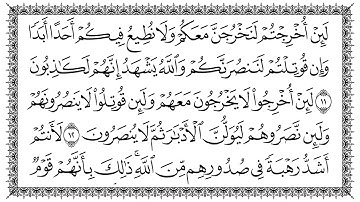 لَئِنْ أُخْرِجْتُمْ لَنَخْرُجَنَّ مَعَكُمْ وَلَا نُطِيعُ فِيكُمْ أَحَدًا أَبَدًا
وَإِن قُوتِلْتُمْ لَنَنصُرَنَّكُمْ وَاللَّهُ يَشْهَدُ إِنَّهُمْ لَكَاذِبُونَ
١١ لَئِنْ أُخْرِجُوا لَا يَخْرُجُونَ مَعَهُمْ وَلَئِن قُوتِلُوا لَا يَنصُرُونَهُمْ
وَلَئِن نَّصَرُوهُمْ لَيُوَلُّنَّ الْأَدْبَارَ ثُمَّ لَا يُنصَرُونَ ١٢ لَأَنتُمْ
أَشَدُّ رَهْبَةً فِي صُدُورِهِم مِّنَ اللَّهِ ۚ ذَٰلِكَ بِأَنَّهُمْ قَوْمٌ